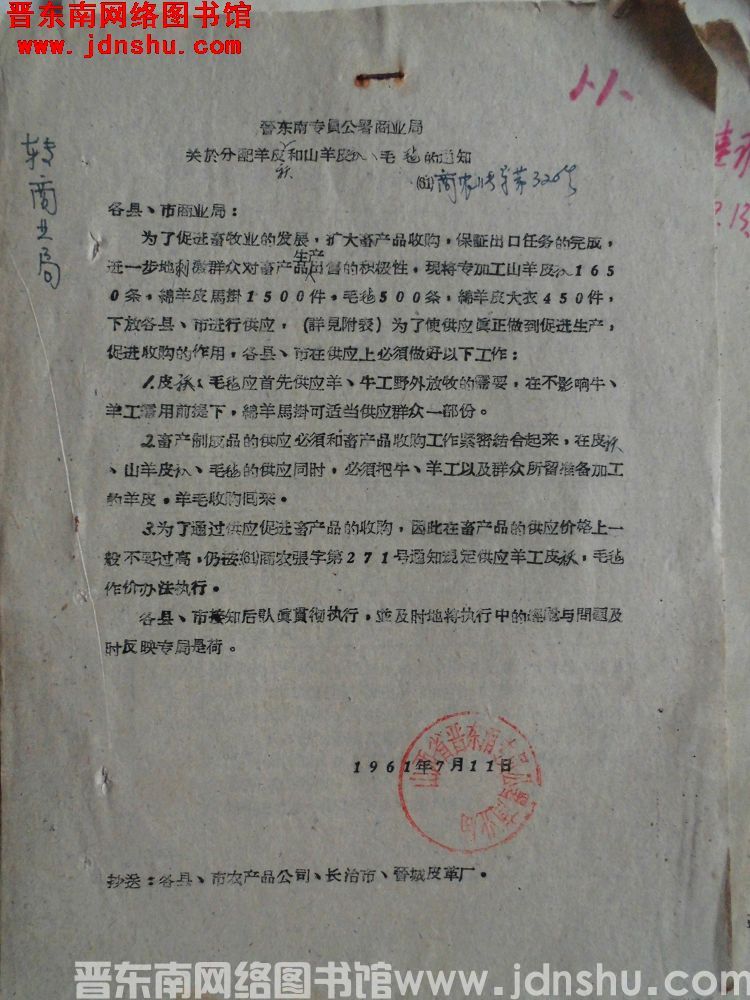 晋东南网络图书馆
www.jdnshu.com
转商业局
晋东南专員公署商业局
关於分配羊皮袄和山羊皮𧘇、毛毡的通知
(61)商农张字第326号
各县、市商业局：
为了促进畜牧业的发展，扩大畜产品收购，保証出口任务的完成，
进一步地刺激群众对畜产品生产出售的积极性，现将专加工山羊皮𧘇165
0条，綿羊皮馬掛1500件，毛毡500条，綿羊皮大衣450件，
下放各县、市进行供应，（詳見附表）为了使供应眞正做到促进生产，
促进收购的作用，各县、市在供应上必须做好以下工作：
1.皮袄、毛毡应首先供应羊、牛工野外放收的需要，在不影响牛、
羊工需用前提下，綿羊馬掛可适当供应群众一部份。
2.畜产制成品的供应必须和畜产品收购工作紧密結合起来，在皮袄
、山羊皮𧘇、毛毡的供应同时，必须把牛、羊工以及群众所留准备加工
的羊皮，羊毛收购回来。
3.为了通过供应促进畜产品的收购，因此在畜产品的供应价格上一
般不要过高，仍按(61)商农張字第271号通知規定供应羊工皮袄，毛毡
作价办法执行。
各县、市接知后认眞貫彻执行，並及时地将执行中的經驗与問題及
时反映专局是荷。
1961年7月11日
山西省晋东南专员公署商业局
抄送：各县、市农产品公司、长治市、晋城皮革厂。
晋东南网络图书馆www.jdnshu.com